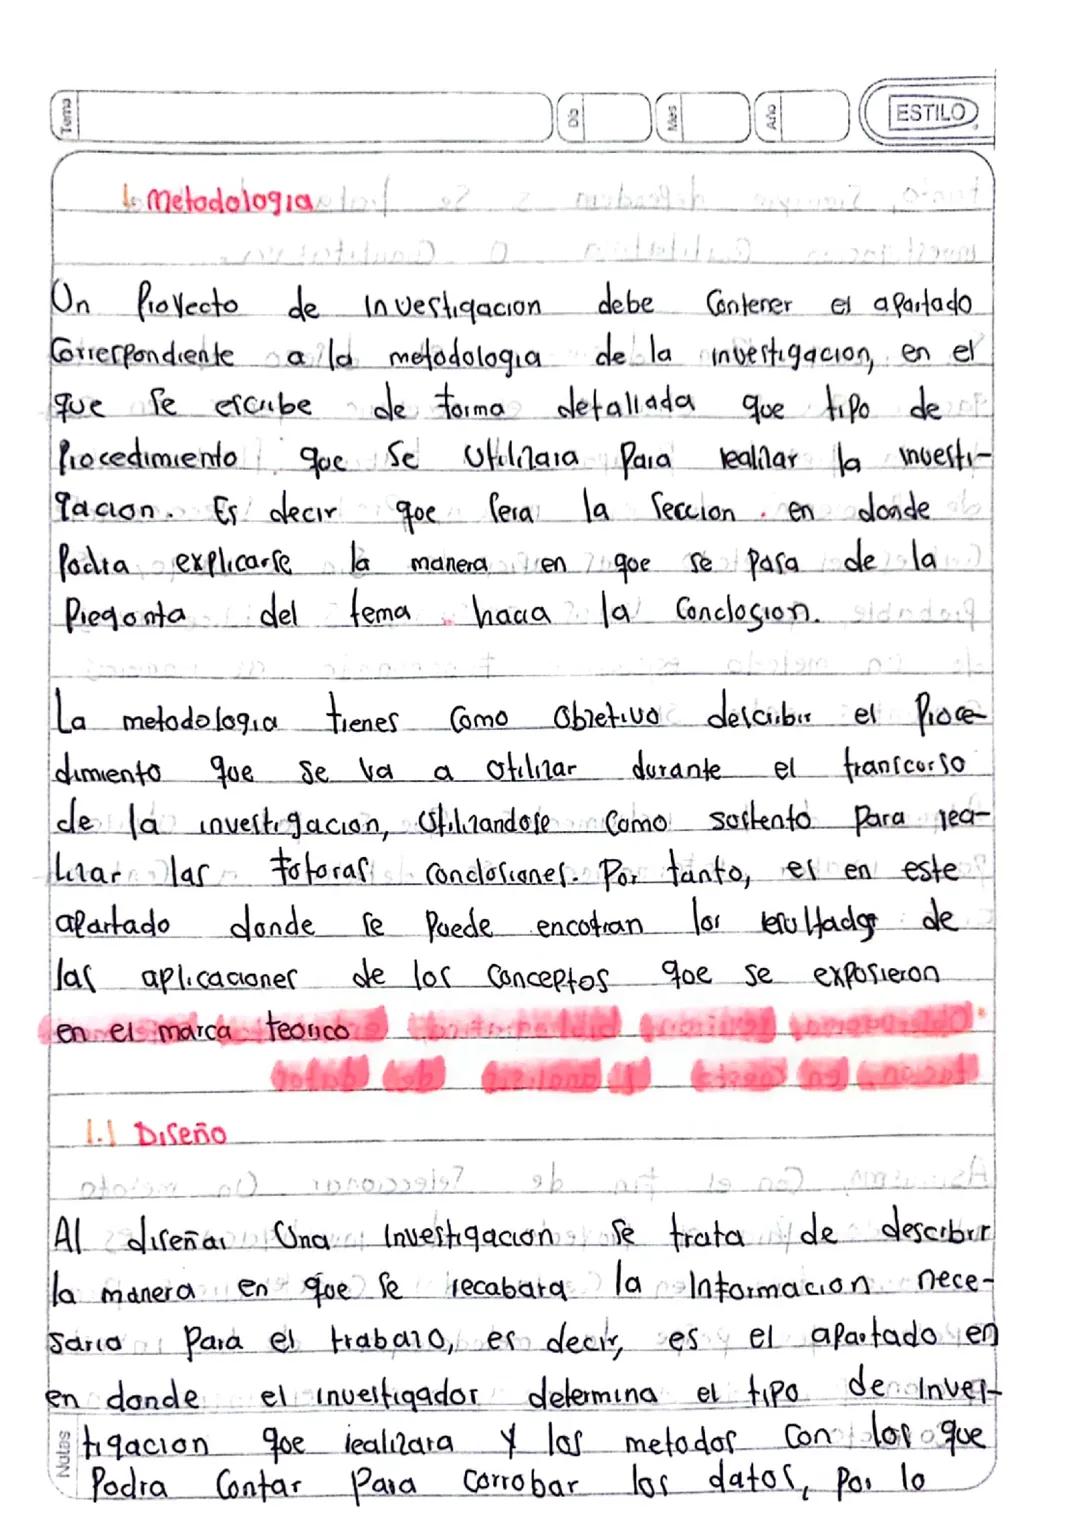 Tema
Dia
Mes
Año
ESTILO
1. Metodologia
Un Proyecto de investigacion debe Contener el apartado
Correspondiente a la metodologia de la investigacion, en el
que se escribe de forma detallada que tipo de
Procedimiento que Se Utilizara Para realizar la investi-
gacion. Es decir que sera la Seccion. en donde
Podra explicarse la manera en que se pasa de la
Pregunta del tema hacia la Conclusion.
La metodologia tienes Como Objetivo describir el Proce-
dimiento que se va a utilizar durante el transcurso
de la investigacion, Utilizandose Como sustento Para rea-
lizar las futuras conclusiones. Por tanto, es en este
apartado donde se Puede encotran los resultados de
las aplicaciones de los Conceptos que se expusieron
en el marca teorico
1.1 Diseño
Al diseñar Una Investigacion se trata de describir
la manera en que se recabara la Informacion nece-
saria Para el trabajo, es decir, es el apartado en
en donde el investigador determina el tipo de inves-
tigacion que realizara Y los metodos Con los que
Podra Contar Para corrobar los datos, Por lo
Notas